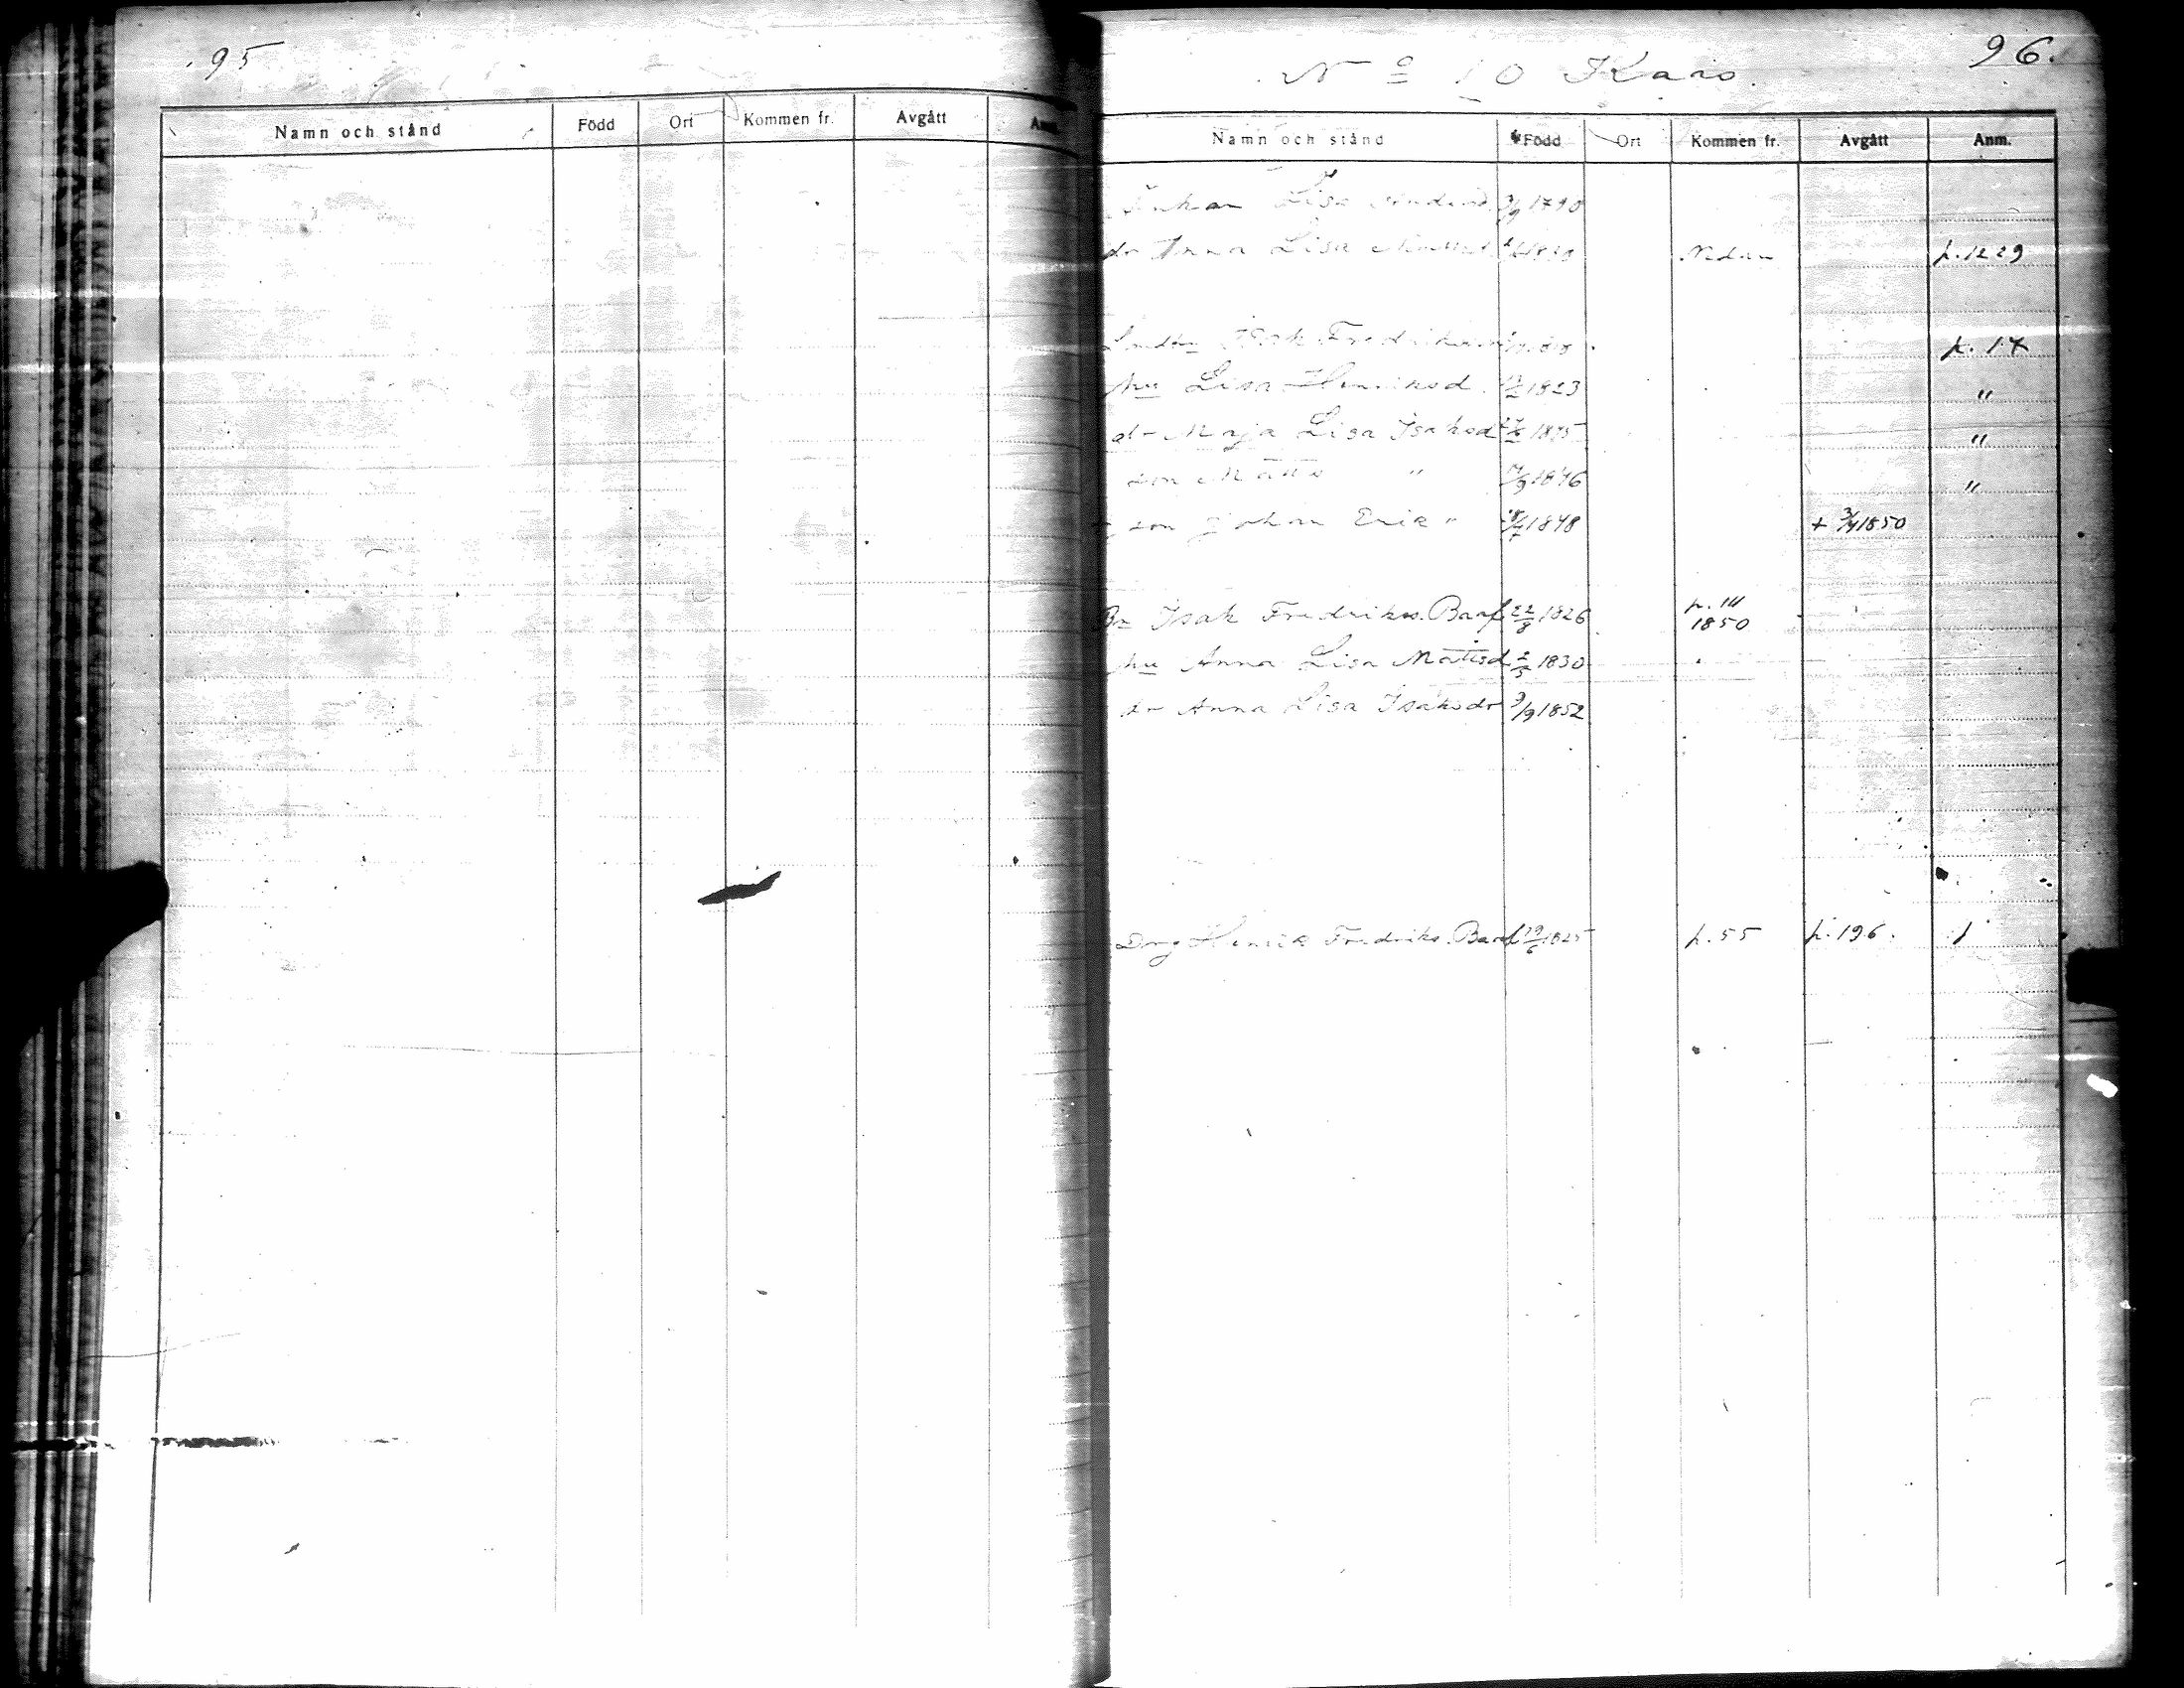 95
Namn och stånd Född Ort Kommen fr. Avgått Anm.
96.
No 10 Karo
Namn och stånd Född Ort Kommen fr. Avgått Anm.
Änkan Lisa 1790
dr Anna Lisa Nedan p. 1229
Isak p. 17
hu Lisa Henriksd. 1823 "
dr Maja Lisa Isaksd 1845 "
son Matts " 1846 "
son Johan Erik " 1848 + 3/4 1850
Bn Isak Fredrikss. Barf 22/8 1826 p. 111
1850
hu Anna Lisa Mattsd 1830
dr Anna Lisa Isaksdr 9/9 1852
Drg Henrik Fredriks. Barf 29/6 1825 p. 55 p. 196.